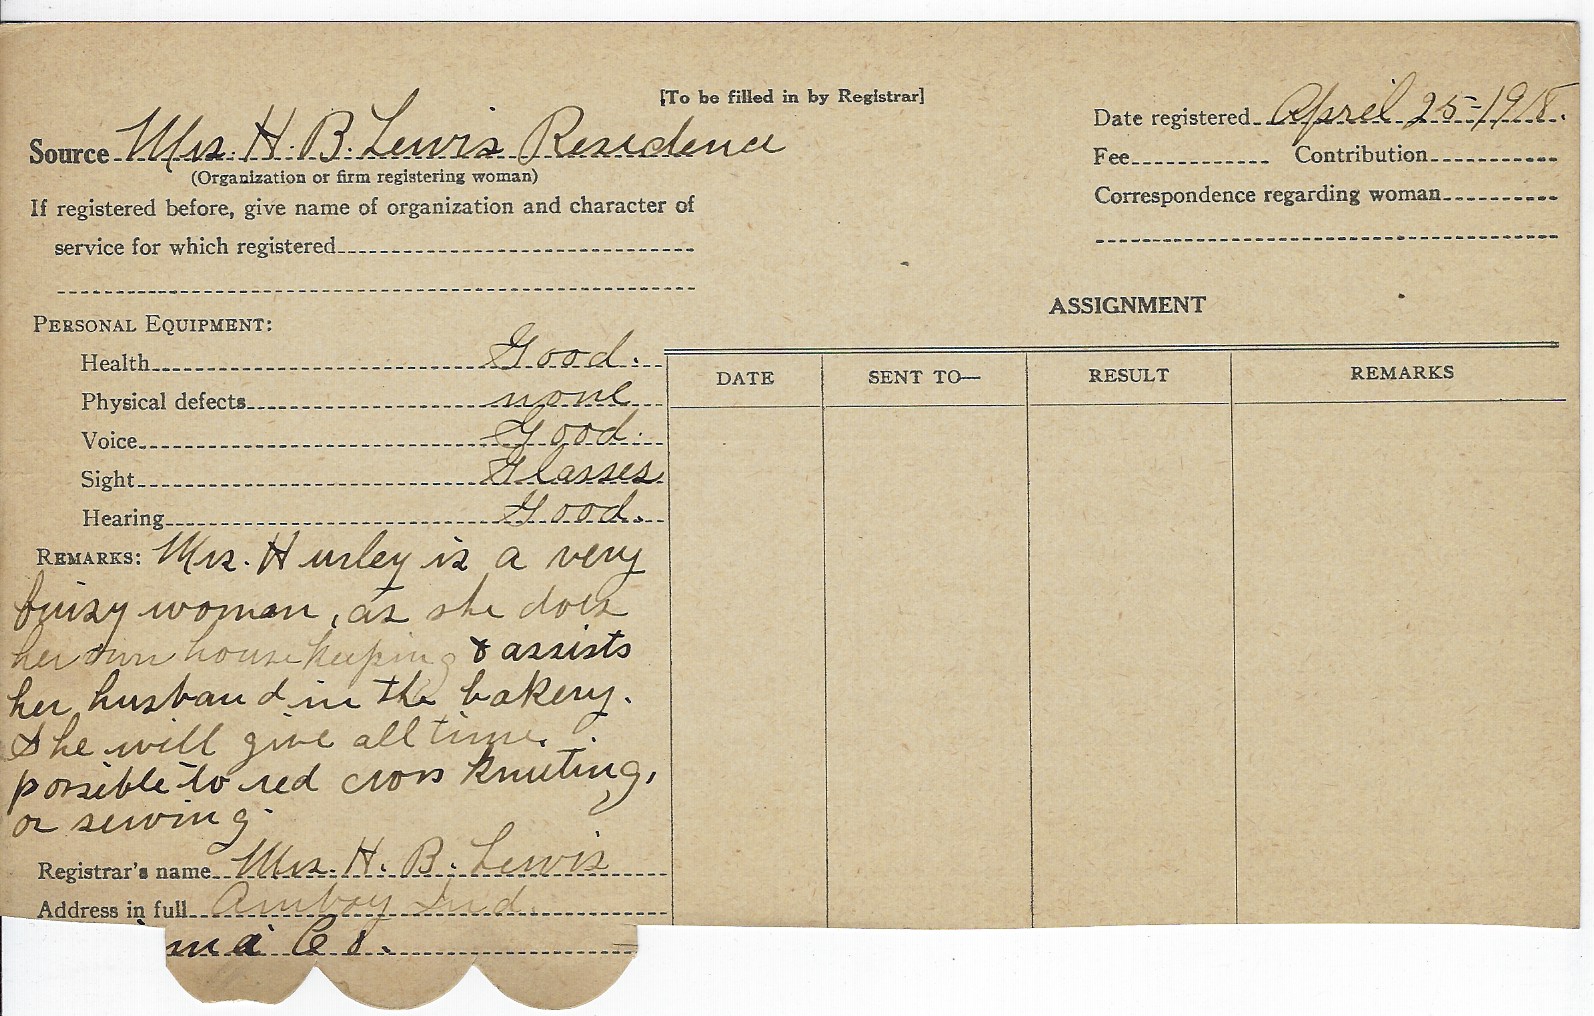 [To be filled in by Registrar]
Source Mrs. H. B. Lewis Residence
(Organization or firm registering woman)
If registered before, give name of organization and character of
service for which registered
Date registered April 25-1918.
Fee Contribution
Correspondence regarding woman
PERSONAL EQUIPMENT:
Health Good.
Physical defects none
Voice Good.
Sight Glasses
Hearing Good.
REMARKS: Mrs. Hurley is a very
buisy woman, as she does
her own housekeeping & assists
her husband in the bakery.
She will give all time
possible to red cross knitting,
or sewing.
Registrar's name Mrs. H. B. Lewis
Address in full Amboy Ind.
mi Co.
ASSIGNMENT
DATE SENT TO— RESULT REMARKS